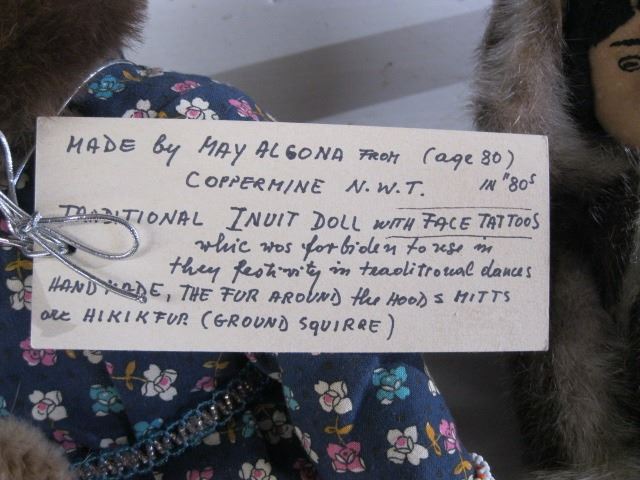 MADE by MAY ALGONA FROM (age 80)
COPPERMINE N.W.T. IN "80s
TRADITIONAL INUIT DOLL WITH FACE TATTOOS
whic was forbiden to use in
they festivity in traeditional dances
HANDMADE, THE FUR AROUND the HOOD & MITTS
are HIKIKFUR (GROUND SQUIRRE)